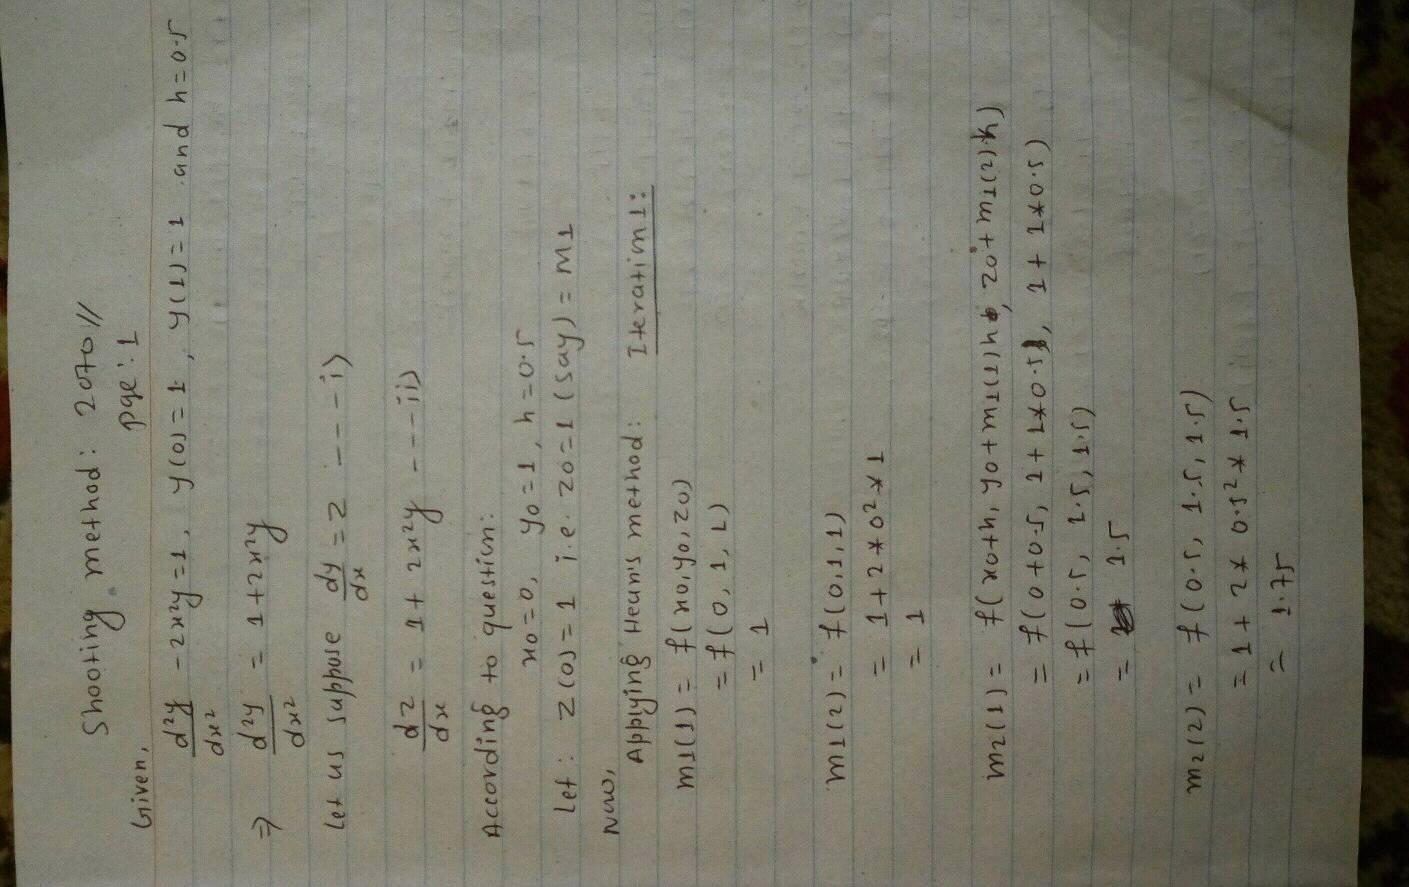 Shooting method: 2070//
page: 1
Given,
d²y/dx² - 2x²y = 1, y(0) = 1, y(1) = 1 and h = 0.5
⇒ d²y/dx² = 1 + 2x²y
Let us suppose dy/dx = z ---- i)
dz/dx = 1 + 2x²y ---- ii)
According to question:
x0 = 0, y0 = 1, h = 0.5
Let: z(0) = 1 i.e. z0 = 1 (say) = M1
Now,
Applying Heun's method: Iteration 1:
m1(1) = f(x0, y0, z0)
= f(0, 1, 1)
= 1
m1(2) = f(0, 1, 1)
= 1 + 2*0²*1
= 1
m2(1) = f(x0+h, y0+m1(1)h, z0+m1(2)h)
= f(0+0.5, 1+1*0.5, 1+1*0.5)
= f(0.5, 1.5, 1.5)
= 1.5
m2(2) = f(0.5, 1.5, 1.5)
= 1 + 2*0.5²*1.5
= 1.75